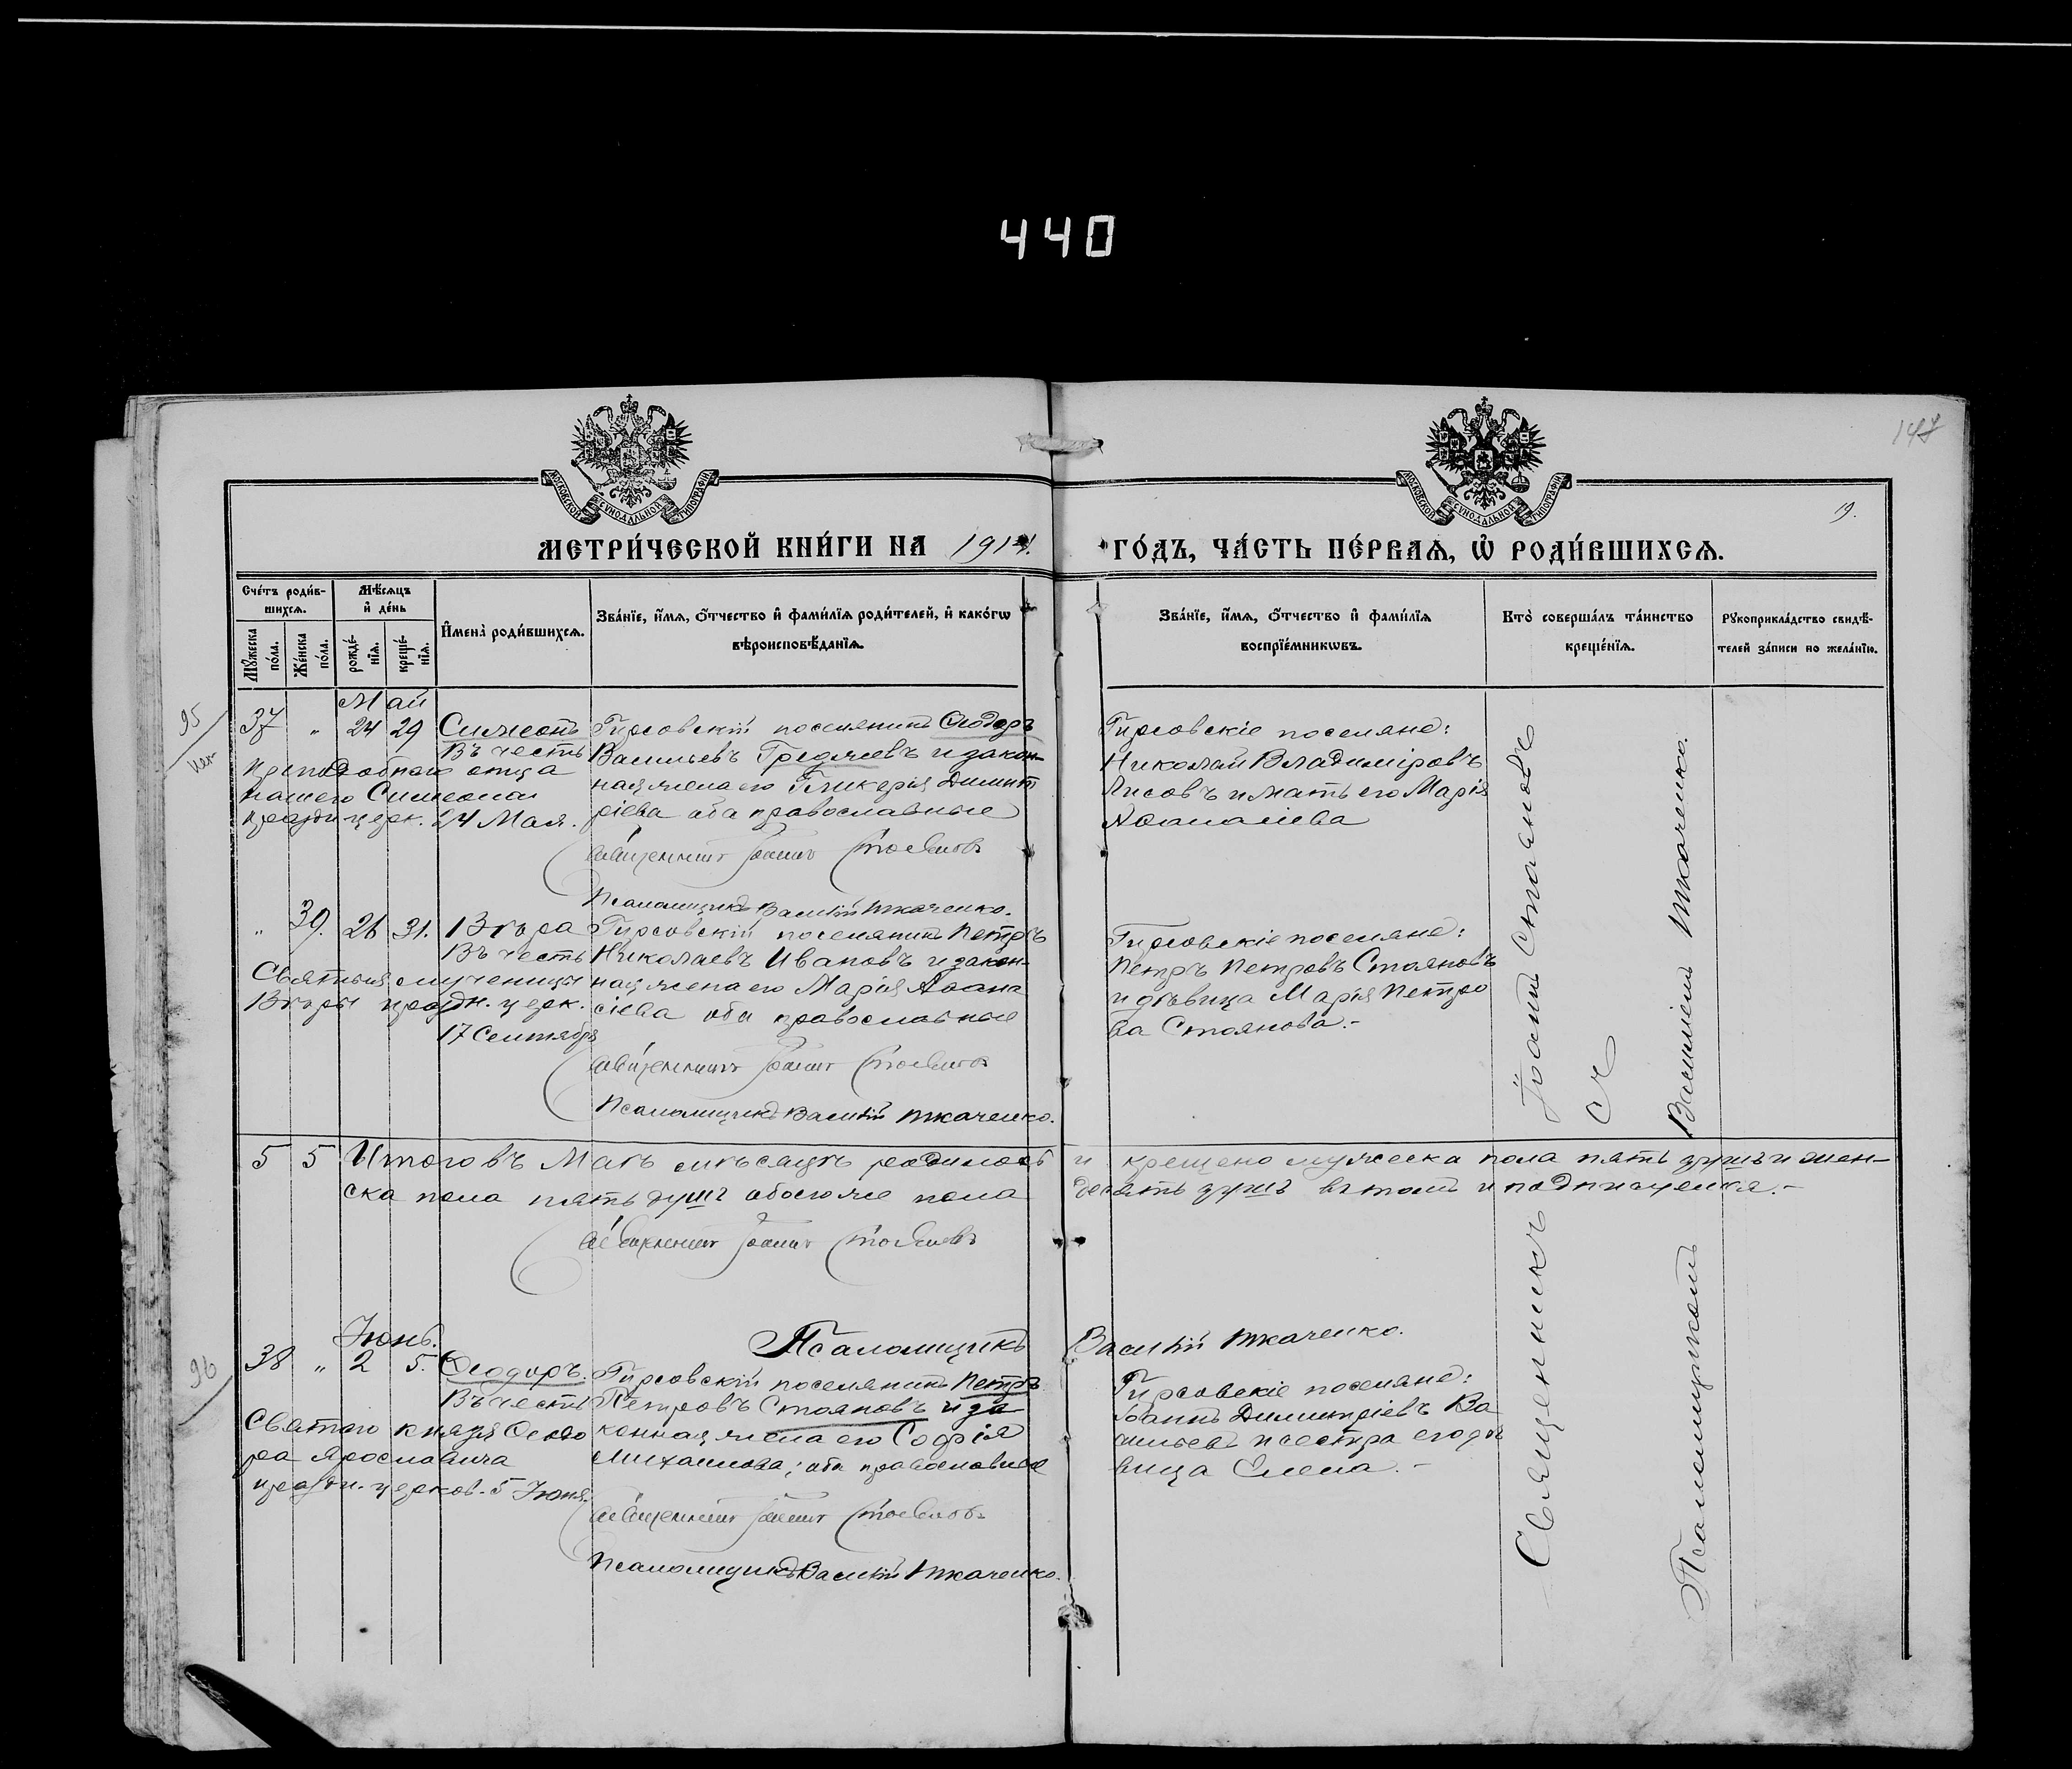 440
147
19.
МОСКОВСКОЙ СѴНОДАЛЬНОЙ ТИПОГРАФІИ
МОСКОВСКОЙ СѴНОДАЛЬНОЙ ТИПОГРАФІИ
МЕТРИ́ЧЕСКОЙ КНИ́ГИ НА 1914. ГО́ДЪ, ЧА́СТЬ ПЕ́РВАѦ, Ѡ҆ РОДИ́ВШИХСѦ.
Сче́тъ роди́в-
шихсѧ.
Мꙋ́жеска по́ла.
Же́нска по́ла.
Мѣ́сѧцъ
и҆ де́нь
рожде́-
нїѧ.
креще́-
нїѧ.
И҆мена̀ роди́вшихсѧ.
Зва́нїе, и҆́мѧ, ѻ҆́тчество и҆ фами́лїѧ роди́телей, и҆ како́гѡ
вѣроисповѣ́данїѧ.
Зва́нїе, и҆́мѧ, ѻ҆́тчество и҆ фами́лїѧ
воспрїе́мникѡвъ.
Кто̀ соверша́лъ та́инство
креще́нїѧ.
Рꙋкоприкла́дство свидѣ́-
телей за́писи по жела́нїю.
Май
95
37 " 24 29 Симеонъ
Въ честь
преподобнаго отца
нашего Симеона
праздн. церк. 24 Мая.
Гирсовскій поселянинъ Ѳеодоръ
Васильевъ и закон-
ная жена его Гликерія Димит
ріева оба православные
Священникъ Іоаннъ Стояновъ
Псаломщикъ Василій Ткаченко.
Гирсовскіе поселяне:
Николай Владиміровъ
Лисовъ и мать его Марія
Аѳанасіева
" 39. 26 31. Вѣра
Въ честь
Святыя мученицы
Вѣры праздн. церк.
17 Сентября
Гирсовскій поселянинъ Петръ
Николаевъ Ивановъ и закон-
ная жена его Марія Аѳана
сіева оба православные
Священникъ Іоаннъ Стояновъ
Псаломщикъ Василій Ткаченко.
Гирсовскіе поселяне:
Петръ Петровъ Стояновъ
и дѣвица Марія Петро
ва Стоянова.-
5 5 Итого въ Маѣ мѣсяцѣ родилось и крещено мужеска пола пять душъ и жен-
ска пола пять душъ обоего же пола десять душъ въ томъ и подписуемся.-
Священникъ Іоаннъ Стояновъ
Псаломщикъ Василій Ткаченко.
Іюнь.
96
38 " 2 5. Ѳеодоръ.
Въ честь
Святаго князя Ѳеодо
ра Ярославича
праздн. церков. 5 Іюня.
Гирсовскій поселянинъ Петръ
Петровъ Стояновъ и за
конная жена его Софія
Михаилова; оба православные
Священникъ Іоаннъ Стояновъ
Псаломщикъ Василій Ткаченко.
Гирсовскіе поселяне:
Іоаннъ Димитріевъ Ва
сильевъ и сестра его дѣ
вица Елена.-
Священникъ Іоаннъ Стояновъ
съ
Псаломщикомъ Василіемъ Ткаченко.